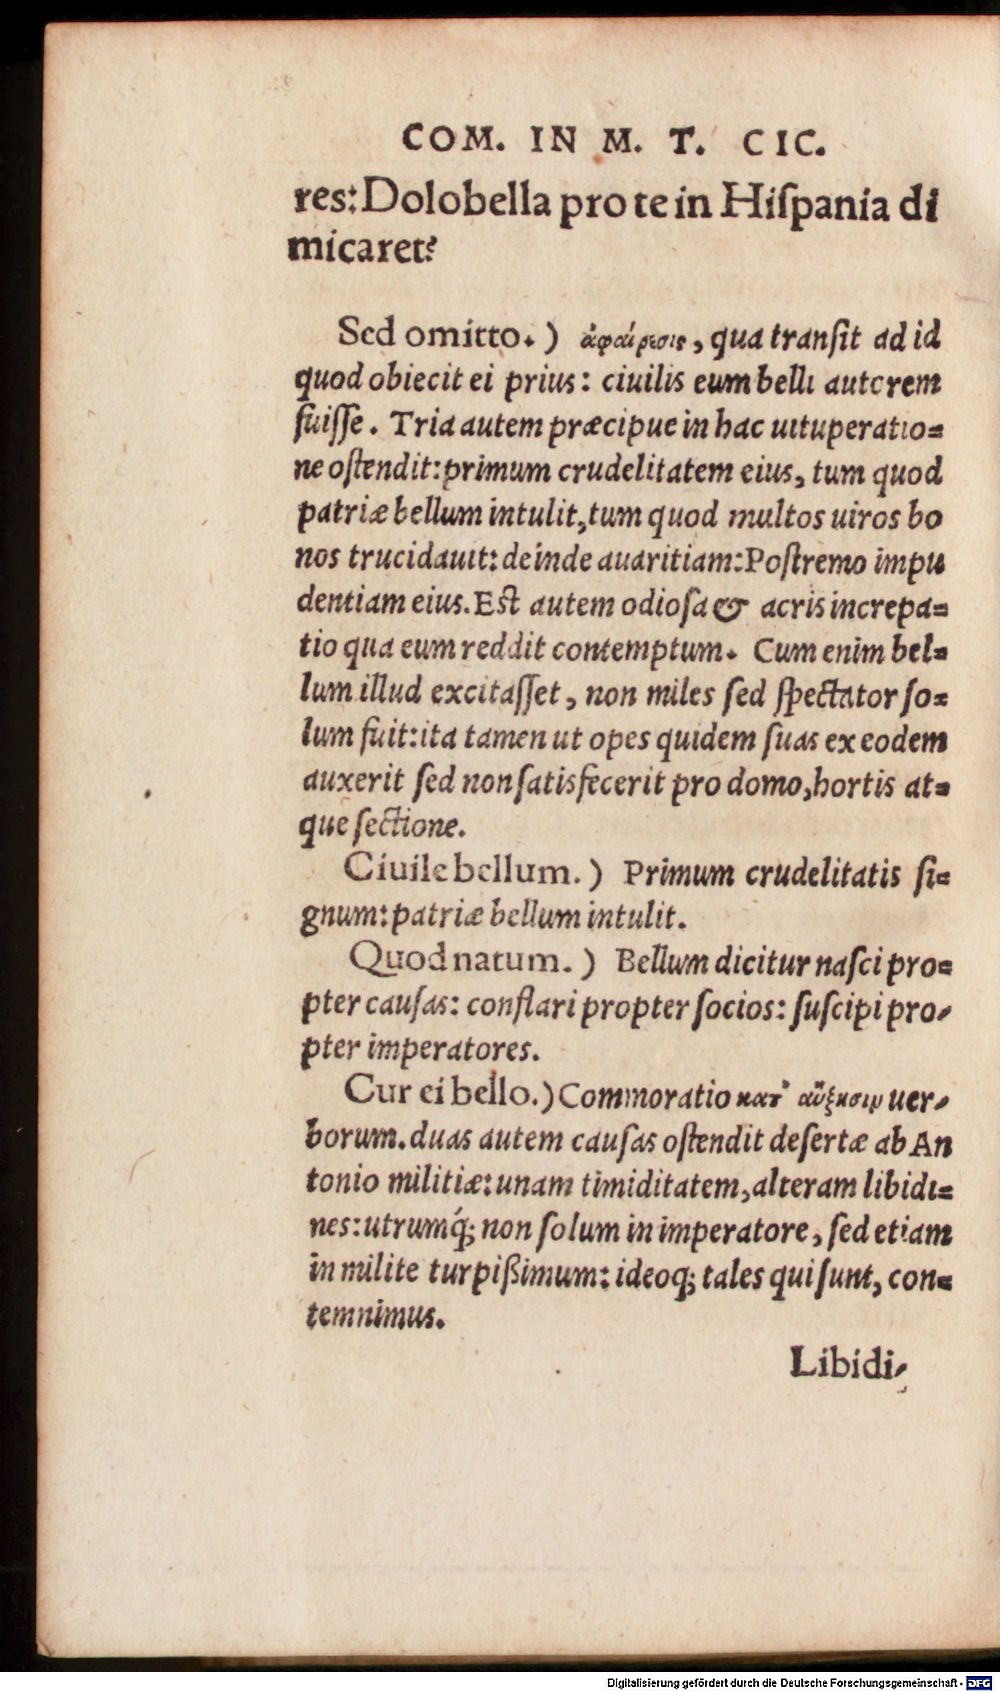 COM. IN M. T. CIC.
res: Dolobella pro te in Hiſpania di
micaret?
Sed omitto.) ἀφαίρεσις, qua tranſit ad id
quod obiecit ei prius: ciuilis eum belli autorem
fuiſſe. Tria autem præcipue in hac uituperatio=
ne oſtendit: primum crudelitatem eius, tum quod
patriæ bellum intulit, tum quod multos uiros bo
nos trucidauit: deinde auaritiam: Poſtremo impu
dentiam eius. Eſt autem odioſa & acris increpa=
tio qua eum reddit contemptum. Cum enim bel=
lum illud excitaſſet, non miles ſed ſpectator ſo=
lum fuit: ita tamen ut opes quidem ſuas ex eodem
auxerit ſed non ſatisfecerit pro domo, hortis at=
que ſectione.
Ciuile bellum.) Primum crudelitatis ſi=
gnum: patriæ bellum intulit.
Quod natum.) Bellum dicitur naſci pro=
pter cauſas: conflari propter ſocios: ſuſcipi pro-
pter imperatores.
Cur ei bello.) Commoratio κατ' αὔξησιν uer-
borum. duas autem cauſas oſtendit deſertæ ab An
tonio militiæ: unam timiditatem, alteram libidi=
nes: utrumq́; non ſolum in imperatore, ſed etiam
in milite turpißimum: ideoq; tales qui ſunt, con=
temnimus.
Libidi-
Digitalisierung gefördert durch die Deutsche Forschungsgemeinschaft - DFG